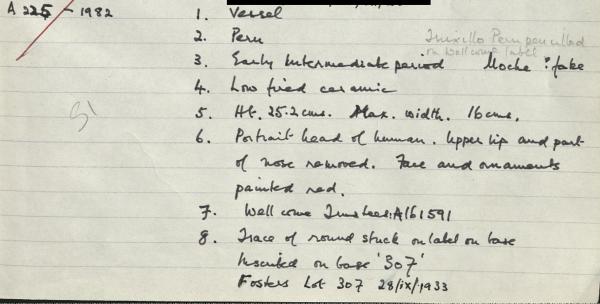 A 225 - 1982
1. Vessel
2. Peru
Truxillo Peru pencilled
on Wellcome label
3. Early Intermediate period Moche ? fake
4. Low fired ceramic
5. Ht. 25.2 cms. Max. width. 16 cms.
6. Portrait head of human. Upper lip and part
of nose removed. Face and ornaments
painted red.
7. Wellcome Trustees: A161591
8. Trace of round stuck on label on base
Inscribed on base '307'
Fosters Lot 307 28/ix/1933